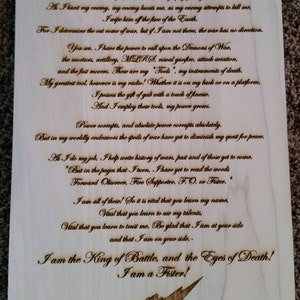 As I hunt my enemy, my enemy hunts me, at my enemy attempts to kill me,
I wipe him off the face of the Earth.
For I determine the out come of war, but if I am not there, the war has no direction.
You see, I have the power to call upon the Demons of War,
the mortars, artillery, MLRS, naval gunfire, attack aviation,
and the fast movers. These are my "Tools", my instruments of death.
My greatest tool, however is my radio! Whether it is on my back or on a platform.
I possess the gift of gab with a touch of finesse.
And I employ these tools, my power grows.
Power corrupts, and absolute power corrupts absolutely,
But in my worldly endeavors the spoils of war have yet to diminish my quest for peace.
As I do my job, I help write history of wars, past and of those yet to come.
"But in the pages that I turn, I have yet to read the words
Forward Observer, Fire Supporter, F.O. or Fister."
I am all of these! So it is vital that you learn my name,
Vital that you learn to use my talents,
Vital that you learn to trust me. Be glad that I am at your side
and that I am on your side.-
I am the King of Battle, and the Eyes of Death!
I am a Fister!